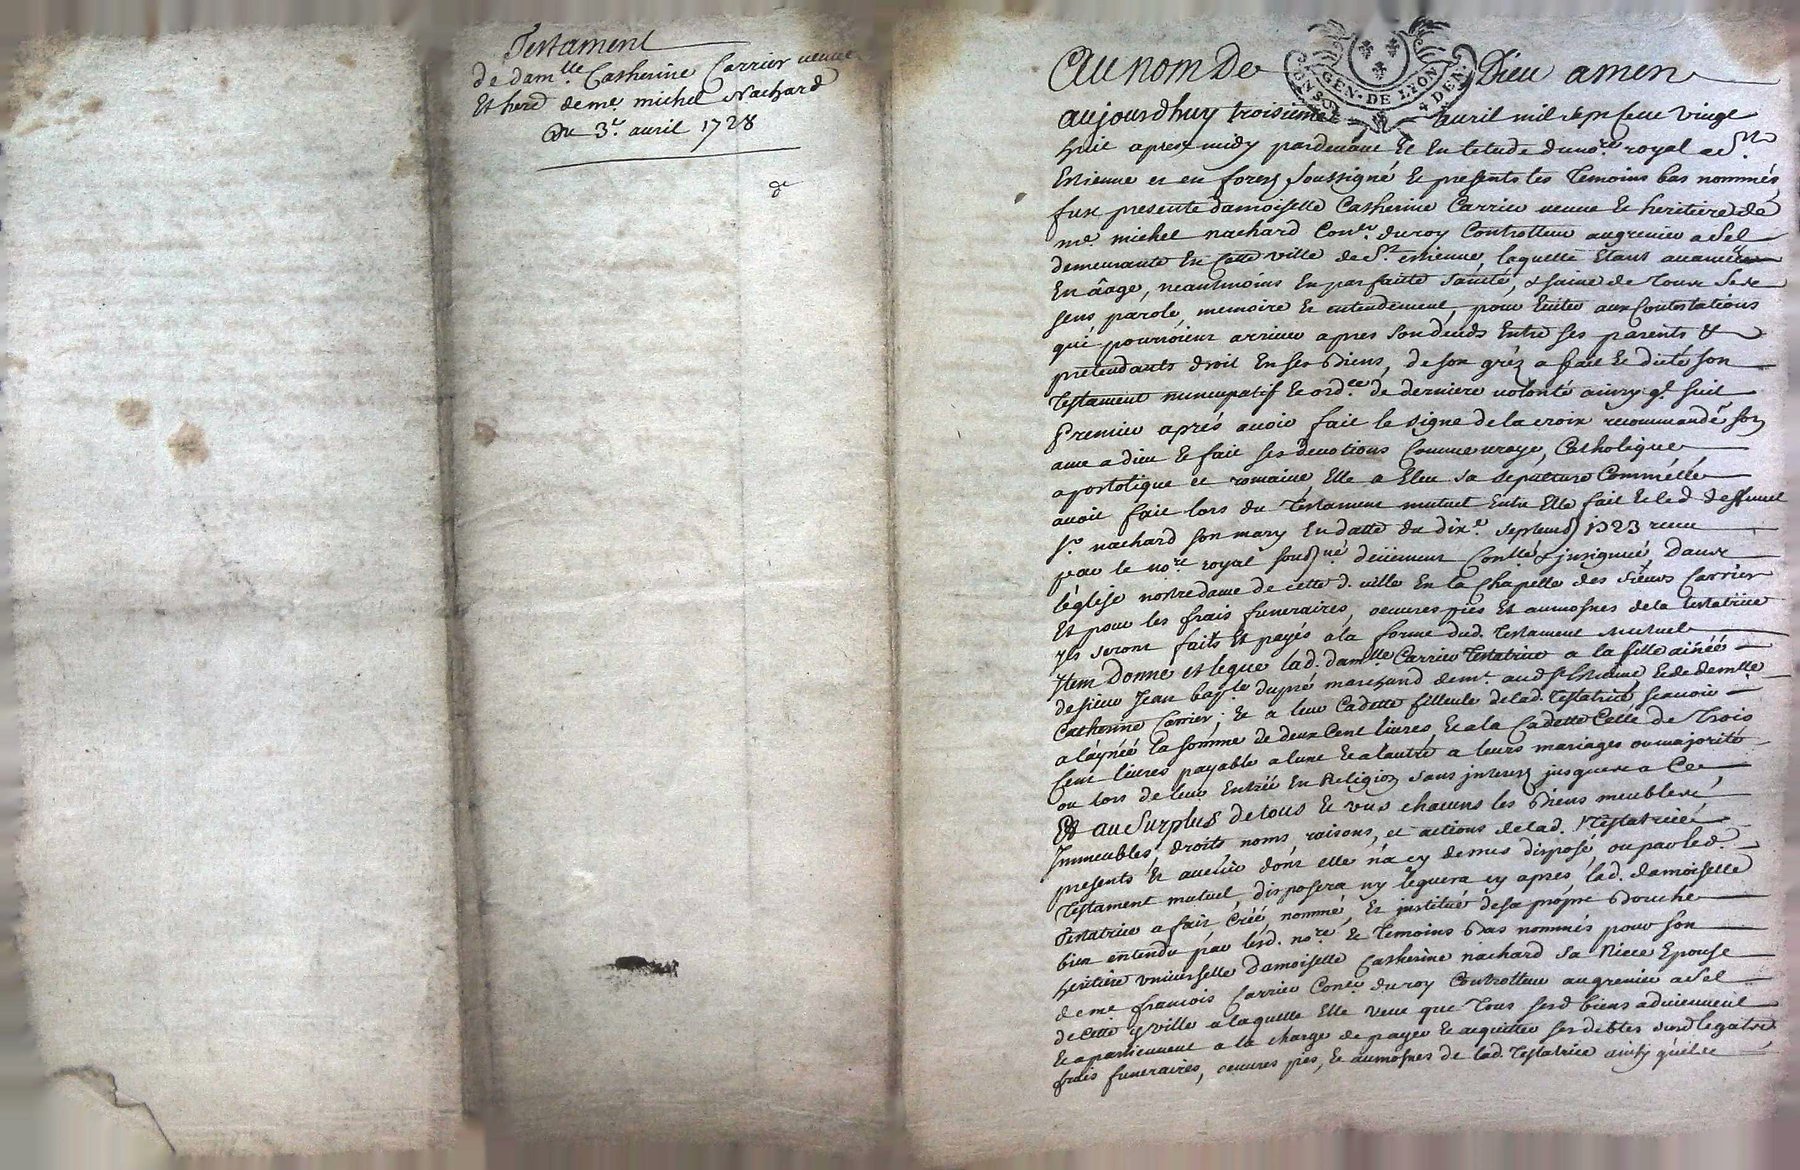 Testament
de dam.lle Catherine Carrier veuve
Et herd de me. michel Nachard
Du 3e. avril 1728
Au nom De Dieu amen
GEN. DE LYON
4 DEN.
aujourdhuy troisieme avril mil sept cent vingt
huit apres midy pardevant Et En letude du nore. royal a St.
Estienne et en forest soussigné & presents les Temoins bas nommés
fut presente damoiselle Catherine Carrier veuve & heritiere de
me. michel nachard Coner. du roy Controlleur au grenier a Sel
demeurante En Cette ville de St. estienne, laquelle Etant avancée
En âage, neantmoins En parfaitte santé, & saine de Tous Ses
sens parole, memoire & entendement, pour Eviter aux Contestations
qui pourroient arriver apres son deceds Entre ses parents &
pretendants droit En ses Biens, de son gréz a fait & dicté son
Testament nuncupatif & ordce. de derniere volonté ainsy q.l suit
Premier aprés avoir fait le signe de la croix recommandé son
ame a dieu & fait ses devotions Comme vraye, Catholique
apostolique et romaine, Elle a Eleu sa sepulture Comm'elle
avoit fait lors du Testament mutuel Entre Elle fait & led. deffunct
Sr. nachard son mary En datte du dixe. septemb 1723 receu
par le nore. royal soussigné deüement Conllé & insignué Dans
l'église nostre dame de cette d. ville En la Chapelle des sieurs Carrier
Et pour les frais funeraires, oeuvres pies Et aumosnes de la testatrice
yls seront faits Et payés a la forme dud. Testament Mutuel
Item Donne et legue lad. damlle Carrier Testatrice a la fille ainéé
de sieur Jean bapte. dupré marchand demt. aud St Estienne, & de demlle
Catherine Carrier; & a leur Cadette filleule de lad. Testatrice, scavoir
a l'aynéé la somme de deux Cent livres, & a la Cadette Celle de Trois
Cent livres payable a lune & a lautre a leurs mariages ou majorité
ou lors de leur Entréé En Religion sans interest jusques a Ce
Et au Surplus de tous & uns chacuns les Biens meubles,
Immeubles, droits noms, raisons, et actions de lad. Testatrice
presents & avenir dont elle n'a cy dessus disposé, ou par led.
Testament mutuel, disposera ny leguera cy apres, lad. damoiselle
Testatrice a fait Créé, nommé, & institué de sa propre Bouche
bien entendu par lesd. nore. & Temoins Bas nommés pour son
heritiere universelle Damoiselle Catherine nachard sa Niece Epouse
de me francois Carrier Coner. du roy Controlleur au grenier a Sel
de Cette ville a laquelle Elle Veut que Tous sesd biens adviennent
& apartiennent a la charge de payer & acquitter ses debtes susd legats
frais funeraires, oeuvres pies, & aumosnes de lad. Testatrice ainsy qu'il se